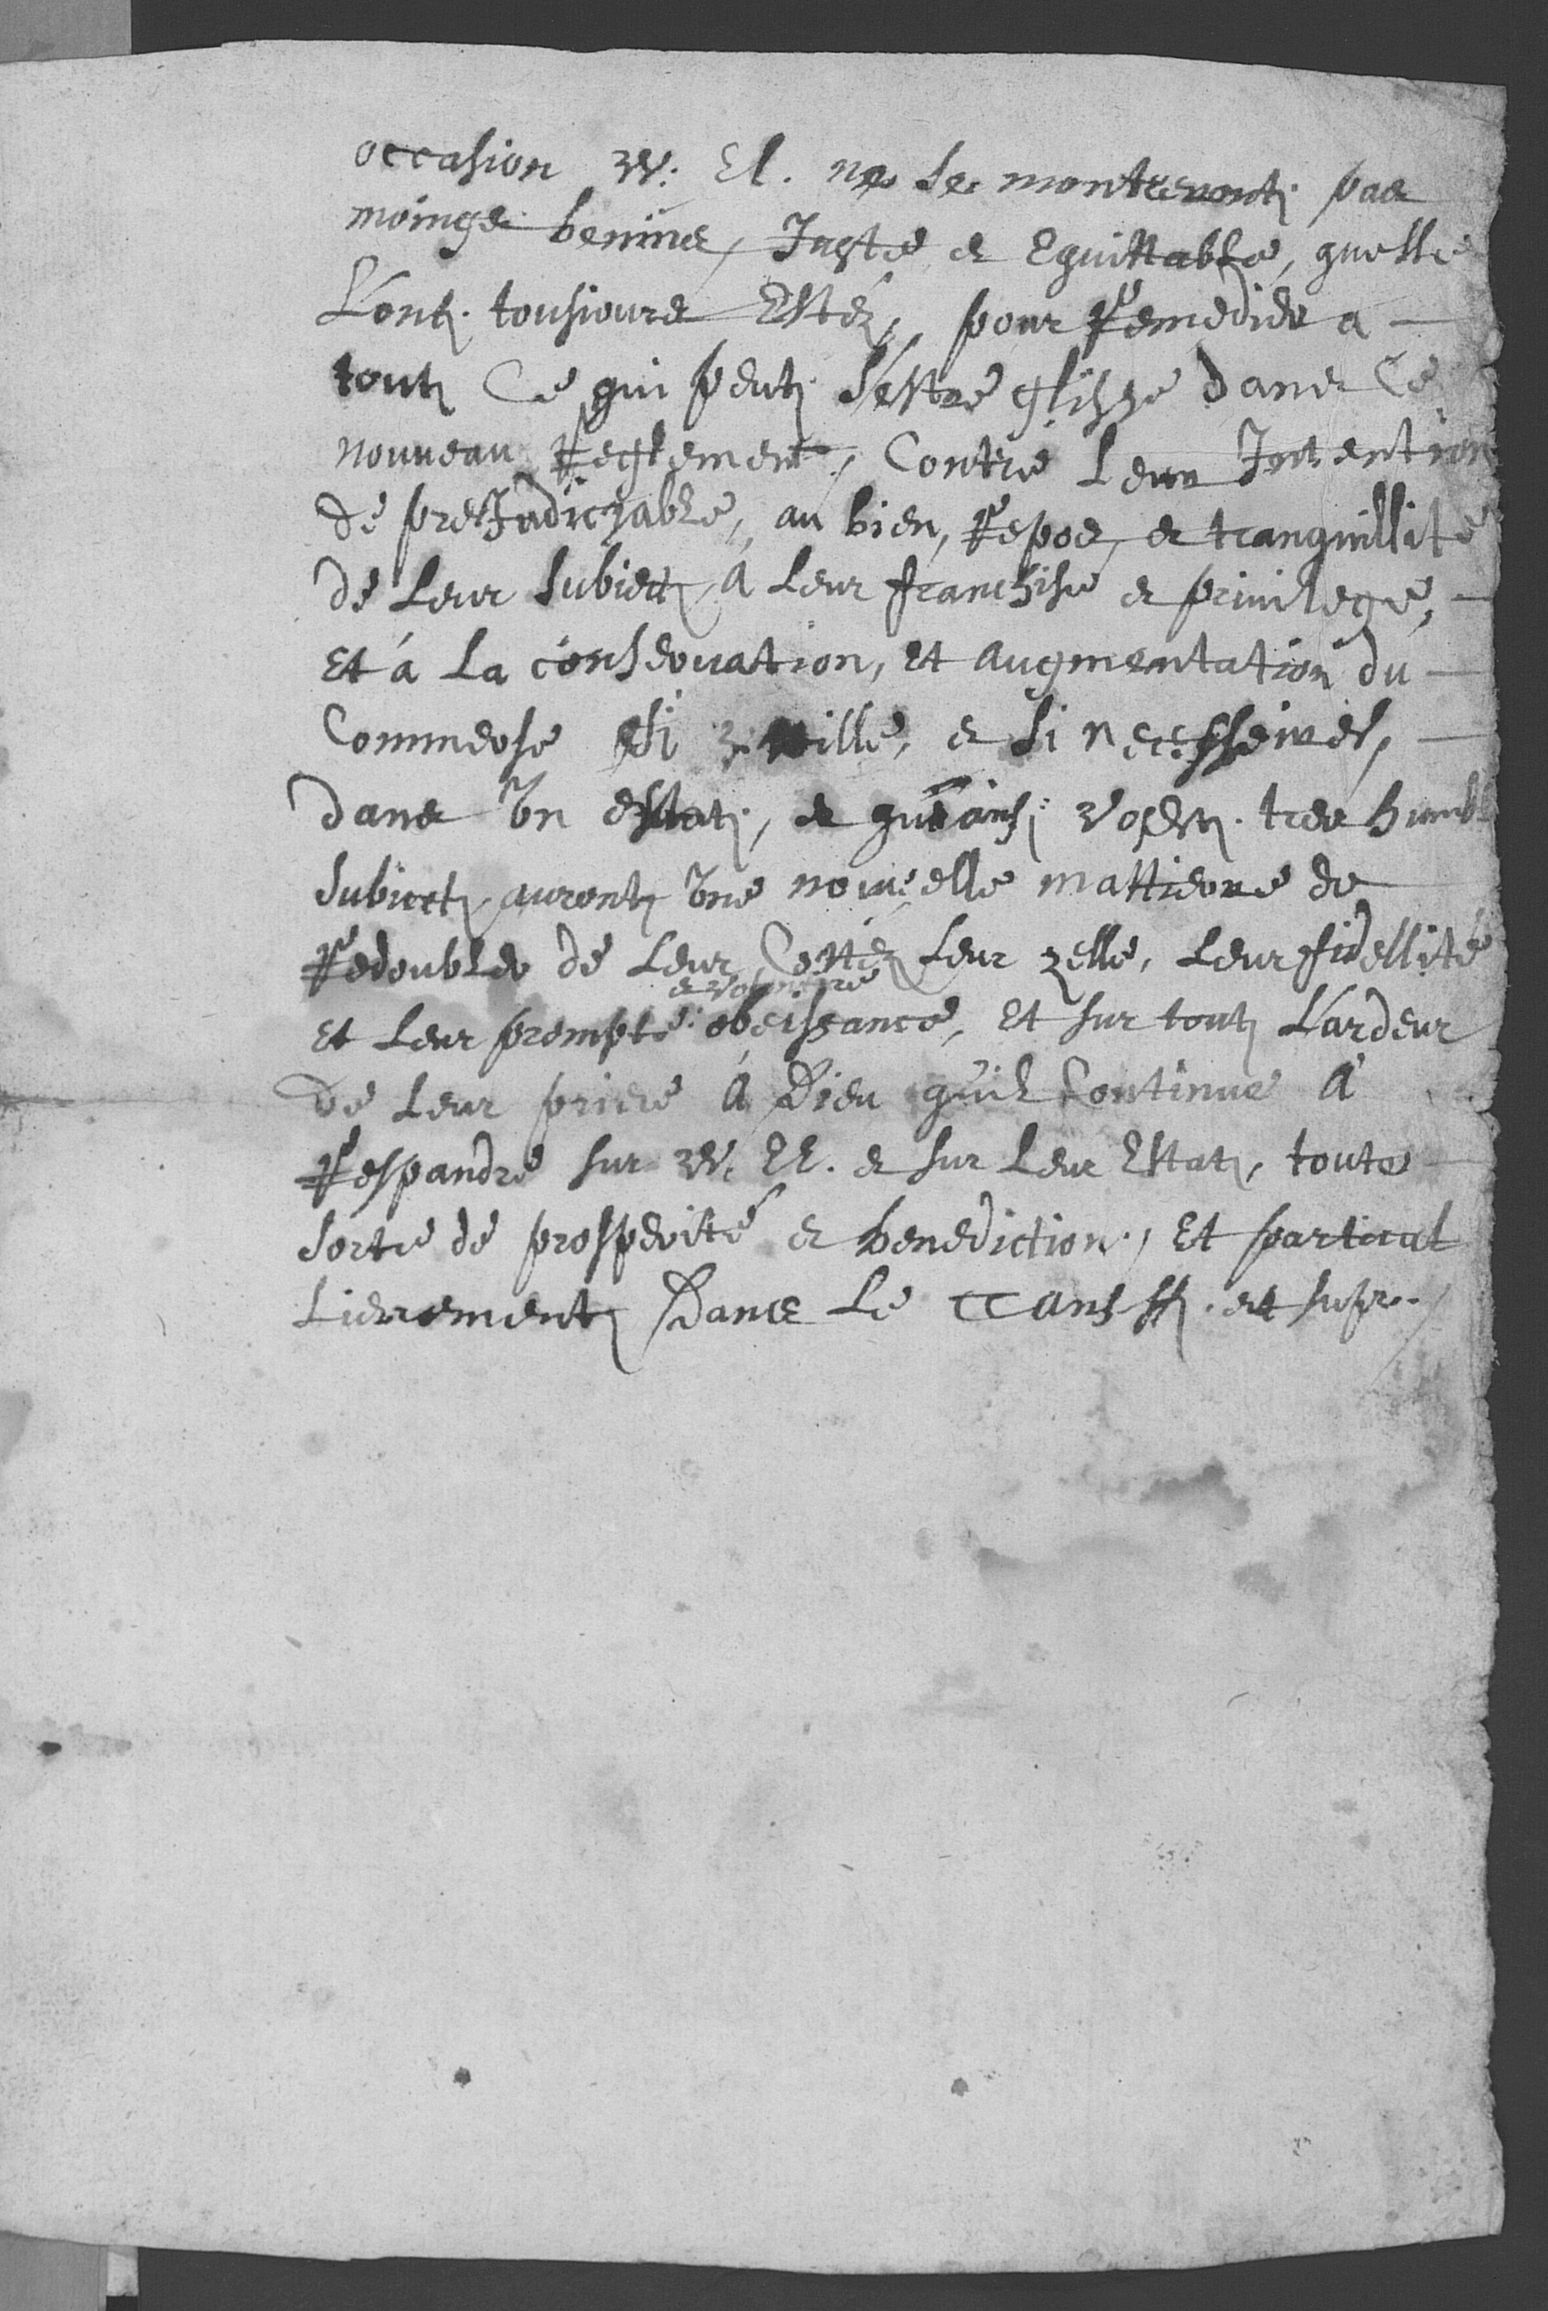 occasion VV. EE. ne se montreront pas
moings benins, Juste et Equittable, quelle
L'ont tousiours Estéz, pour Remedier a
tout Ce qui peut S'estre glisse dans Ce
nouveau Reglement, Contre Leur Intention
de preJudiciable, au bien, Repos, et tranquillité
de Leur Subiect, á Leur franchise et privilege,
Et á La conservation, et augmentation du
Commerse si utille, et si necesseires,
dans Un estat, et qu'ainsi vos tres humbl
Subiect auront Une nouvelle mattiere de
Redoubler de Leur Costéz Leur zelle, Leur fidellité
et volontire
et Leur prompte obeissance, Et sur tout L'ardeur
de Leur priere á Dieu qu'il Continue á
Respandre sur VV. EE. et sur Leur Estat, toute
Sorte de prosperité et benediction, Et particul
Lierement Dans Le